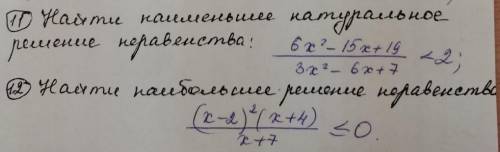 11 Найти наименьшее натуральное
решение неравенства: (6x² - 15x + 19)/(3x² - 6x + 7) < 2;
12 Найти наибольшее решение неравенство
(x-2)²(x+4)/(x+7) ≤ 0.